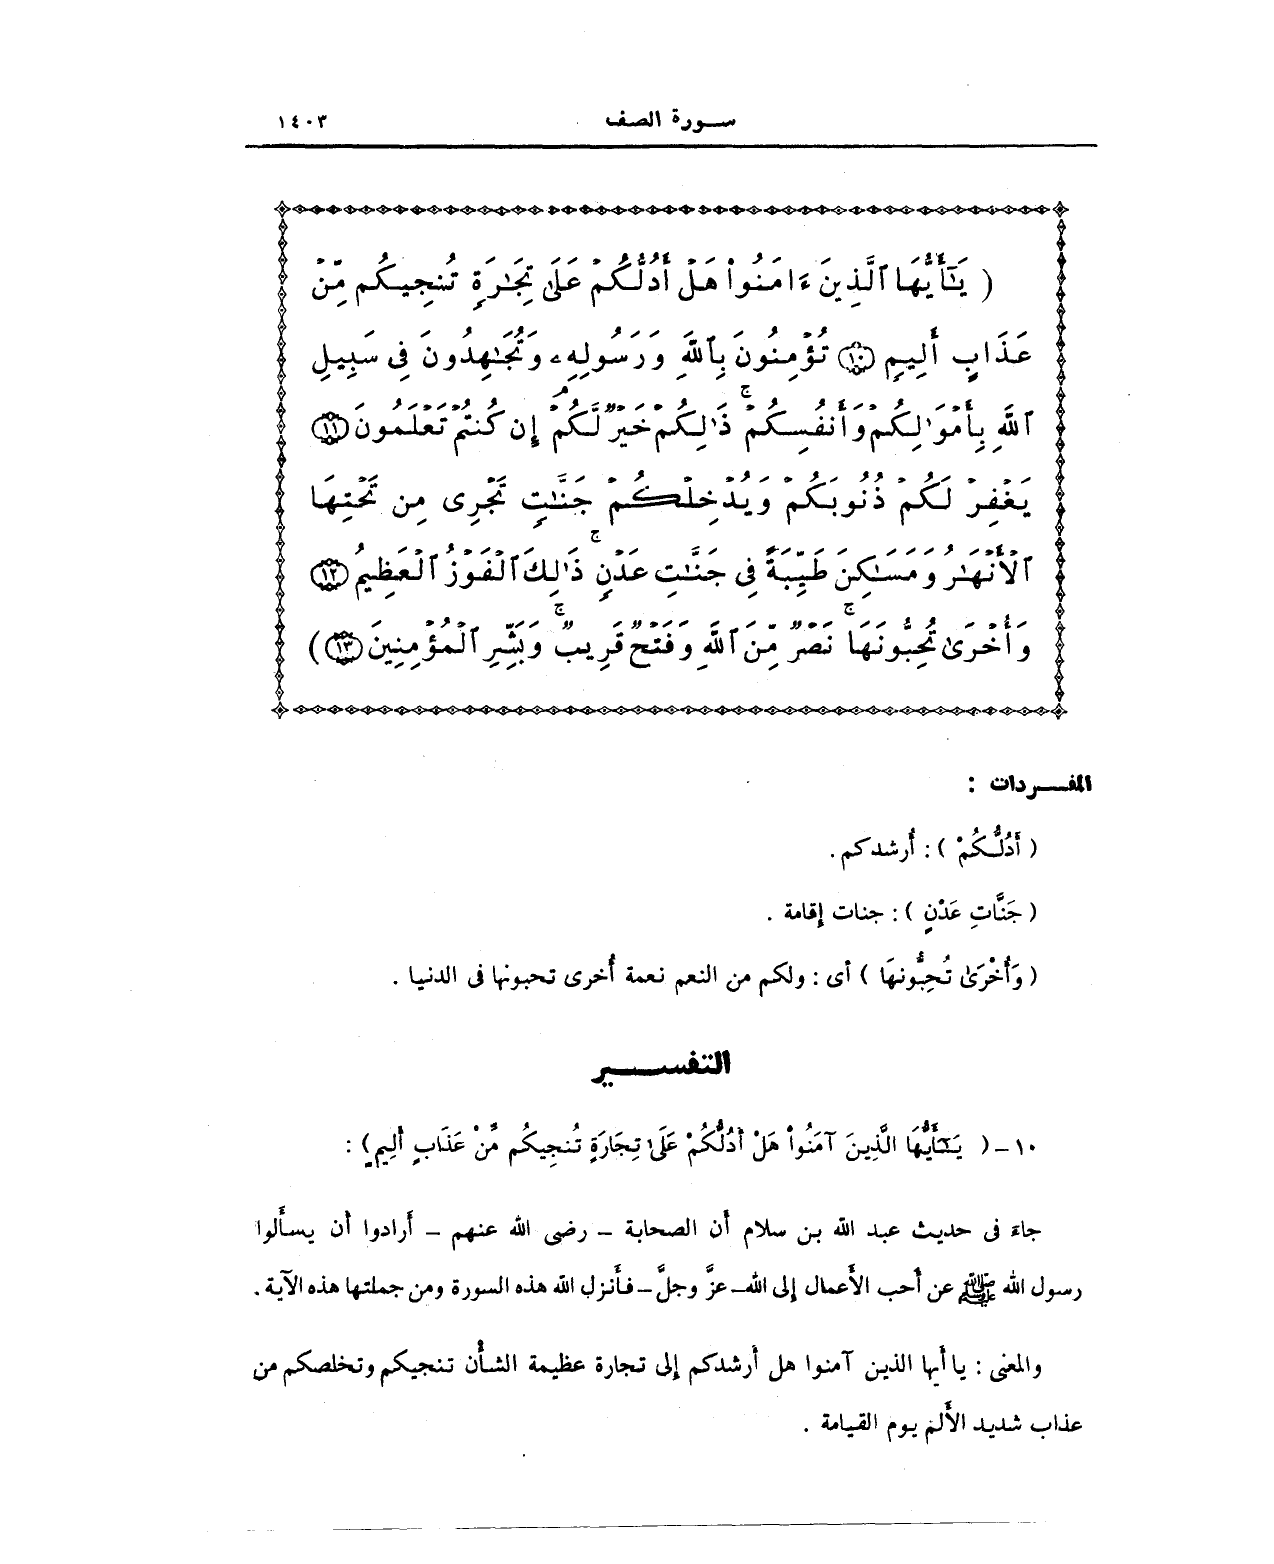 سـورة الصف
١٤٠٣
( يَـٰٓأَيُّهَا ٱلَّذِينَ ءَامَنُوا۟ هَلْ أَدُلُّكُمْ عَلَىٰ تِجَـٰرَةٍ تُنجِيكُم مِّنْ
عَذَابٍ أَلِيمٍ ۝١٠ تُؤْمِنُونَ بِٱللَّهِ وَرَسُولِهِۦ وَتُجَـٰهِدُونَ فِى سَبِيلِ
ٱللَّهِ بِأَمْوَٰلِكُمْ وَأَنفُسِكُمْ ۚ ذَٰلِكُمْ خَيْرٌ لَّكُمْ إِن كُنتُمْ تَعْلَمُونَ ۝١١
يَغْفِرْ لَكُمْ ذُنُوبَكُمْ وَيُدْخِلْكُمْ جَنَّـٰتٍ تَجْرِى مِن تَحْتِهَا
ٱلْأَنْهَـٰرُ وَمَسَـٰكِنَ طَيِّبَةً فِى جَنَّـٰتِ عَدْنٍ ۚ ذَٰلِكَ ٱلْفَوْزُ ٱلْعَظِيمُ ۝١٢
وَأُخْرَىٰ تُحِبُّونَهَا ۖ نَصْرٌ مِّنَ ٱللَّهِ وَفَتْحٌ قَرِيبٌ ۗ وَبَشِّرِ ٱلْمُؤْمِنِينَ ۝١٣ )
المفـردات :
( أَدُلُّـكُمْ ) : أُرشدكم.
( جَنَّاتِ عَدْنٍ ) : جنات إقامة .
( وَأُخْرَىٰ تُحِبُّونهَا ) أى : ولكم من النعم نعمة أُخرى تحبونها فى الدنيا .
التفسـير
١٠ – ( يَـٰٓأَيُّهَا الَّذِينَ آمَنُوا۟ هَلْ أدُلُّكُمْ عَلَىٰ تِجَارَةٍ تُنجِيكُم مِّنْ عَذَابٍ أَلِيمٍ ) :
جاءَ فى حديث عبد الله بن سلام أن الصحابة – رضى الله عنهم – أرادوا أن يسأَلوا
رسول الله ﷺ عن أحب الأَعمال إلى الله – عزَّ وجلَّ – فأَنزل الله هذه السورة ومن جملتها هذه الآية .
والمعنى : يا أيها الذين آمنوا هل أرشدكم إلى تجارة عظيمة الشأْن تنجيكم وتخلصكم من
عذاب شديد الأَلم يوم القيامة .